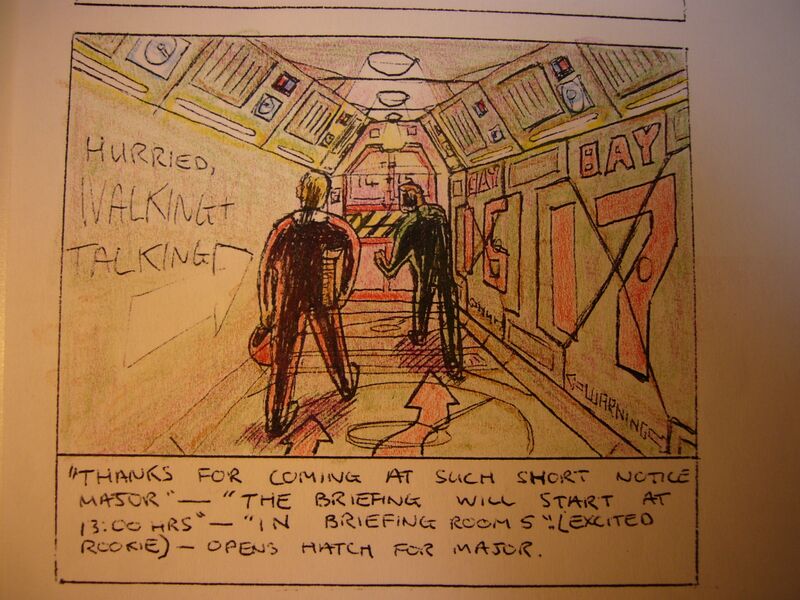 HURRIED,
WALKING +
TALKING
14
BAY
16
BAY
17
WARNING
"THANKS FOR COMING AT SUCH SHORT NOTICE
MAJOR" — "THE BRIEFING WILL START AT
13:00 HRS" — "IN BRIEFING ROOM 5". (EXCITED
ROOKIE) — OPENS HATCH FOR MAJOR.